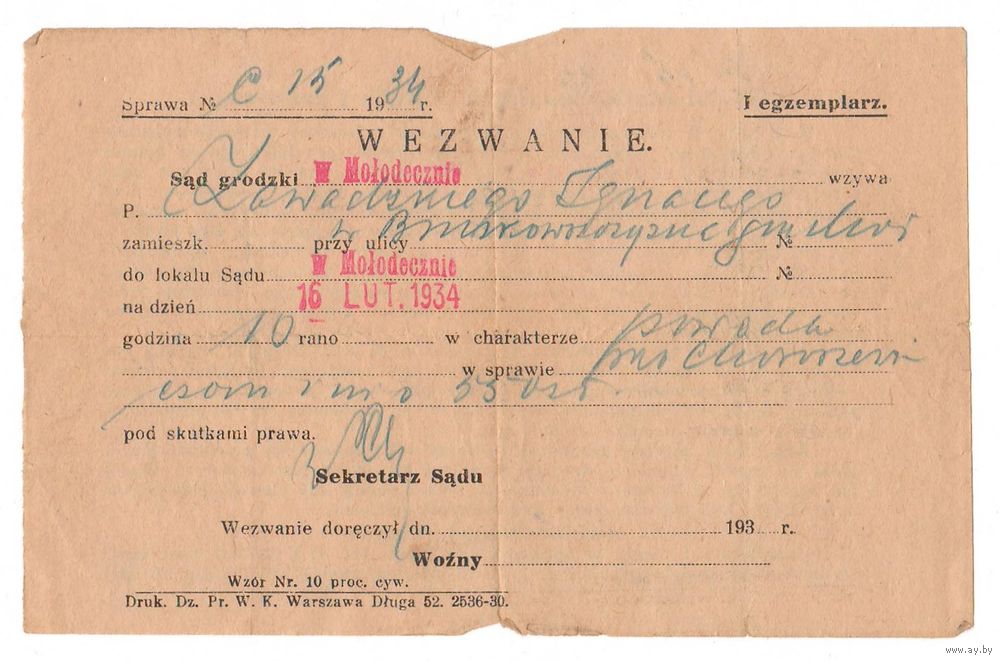 Sprawa № C 15 1934 r. I egzemplarz.
WEZWANIE.
Sąd grodzki w Mołodecznie wzywa
P. Zawadzkiego Ignacego
zamieszk. w przy ulicy №
do lokalu Sądu w Mołodecznie №
na dzień 16 LUT. 1934
godzina 10 rano w charakterze powoda
w sprawie
i in. o 55 
pod skutkami prawa.
Sekretarz Sądu
Wezwanie doręczył, dn. 193 r.
Woźny
Wzór Nr. 10 proc. cyw.
Druk. Dz. Pr. W. K. Warszawa Długa 52. 2536-30.
www.ay.by